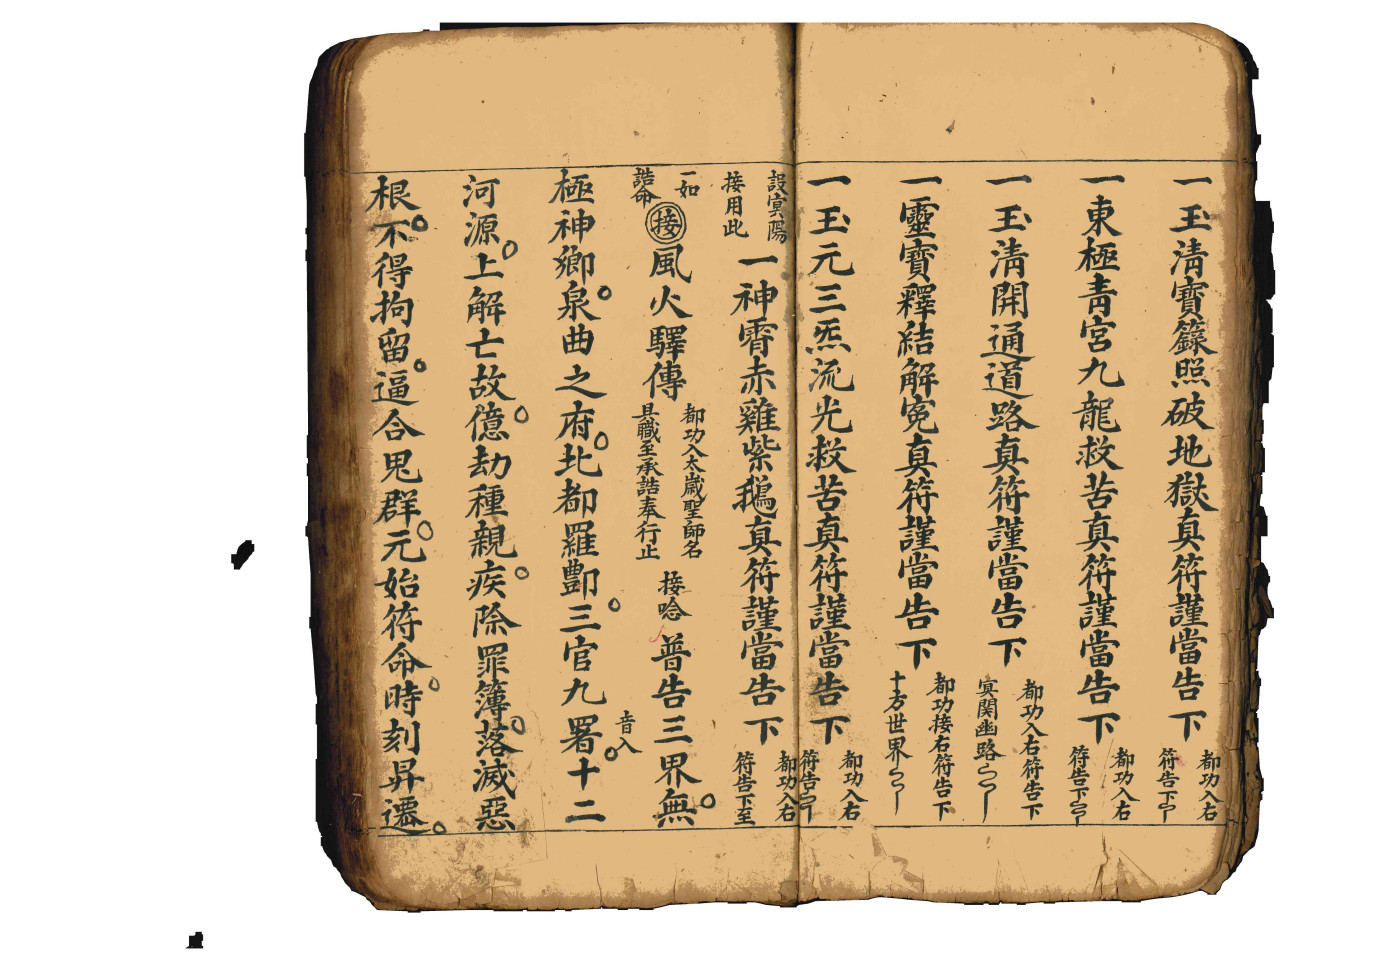 一玉清寶籙照破地獄真符謹當告下 都功入右符告下
一東極青宮九龍救苦真符謹當告下 都功入右符告下
一玉清開通道路真符謹當告下 都功入右符告下冥関幽路
一靈寶釋結解寃真符謹當告下 都功接右符告下十方世界
一玉元三炁流光救苦真符謹當告下 都功入右符告
設冥陽接用此 一神霄赤雞紫鵝真符謹當告下 都功入右符告下至
一如誥命 接 風火驛傳 都功入太歲聖師名具職至承誥奉行止 接唸 普告三界無
極神鄉泉曲之府北都羅酆三官九署十二 音入
河源上解亡故億劫種親疾除罪簿落滅惡
根不得拘留逼合鬼群元始符命時刻昇遷